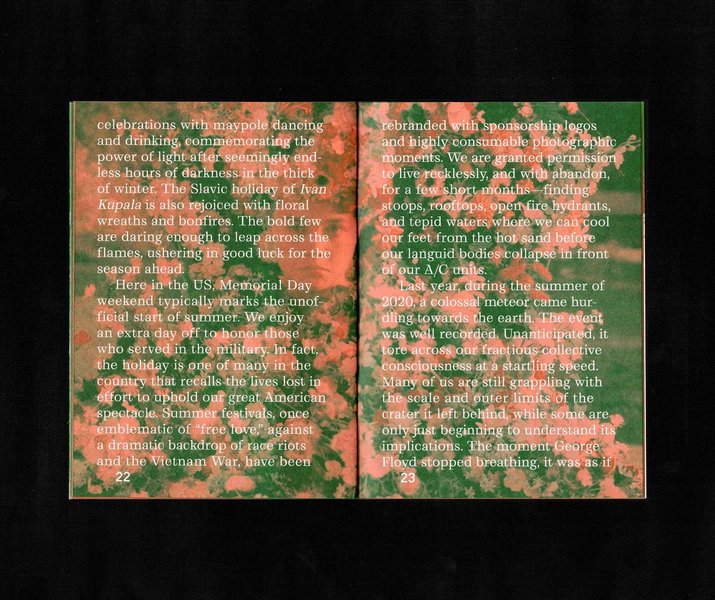 celebrations with maypole dancing
and drinking, commemorating the
power of light after seemingly end-
less hours of darkness in the thick
of winter. The Slavic holiday of Ivan
Kupala is also rejoiced with floral
wreaths and bonfires. The bold few
are daring enough to leap across the
flames, ushering in good luck for the
season ahead.
Here in the US, Memorial Day
weekend typically marks the unof-
ficial start of summer. We enjoy
an extra day off to honor those
who served in the military. In fact,
the holiday is one of many in the
country that recalls the lives lost in
effort to uphold our great American
spectacle. Summer festivals, once
emblematic of “free love,” against
a dramatic backdrop of race riots
and the Vietnam War, have been
22
rebranded with sponsorship logos
and highly consumable photographic
moments. We are granted permission
to live recklessly, and with abandon,
for a few short months—finding
stoops, rooftops, open fire hydrants,
and tepid waters where we can cool
our feet from the hot sand before
our languid bodies collapse in front
of our A/C units.
Last year, during the summer of
2020, a colossal meteor came hur-
dling towards the earth. The event
was well recorded. Unanticipated, it
tore across our fractious collective
consciousness at a startling speed.
Many of us are still grappling with
the scale and outer limits of the
crater it left behind, while some are
only just beginning to understand its
implications. The moment George
Floyd stopped breathing, it was as if
23